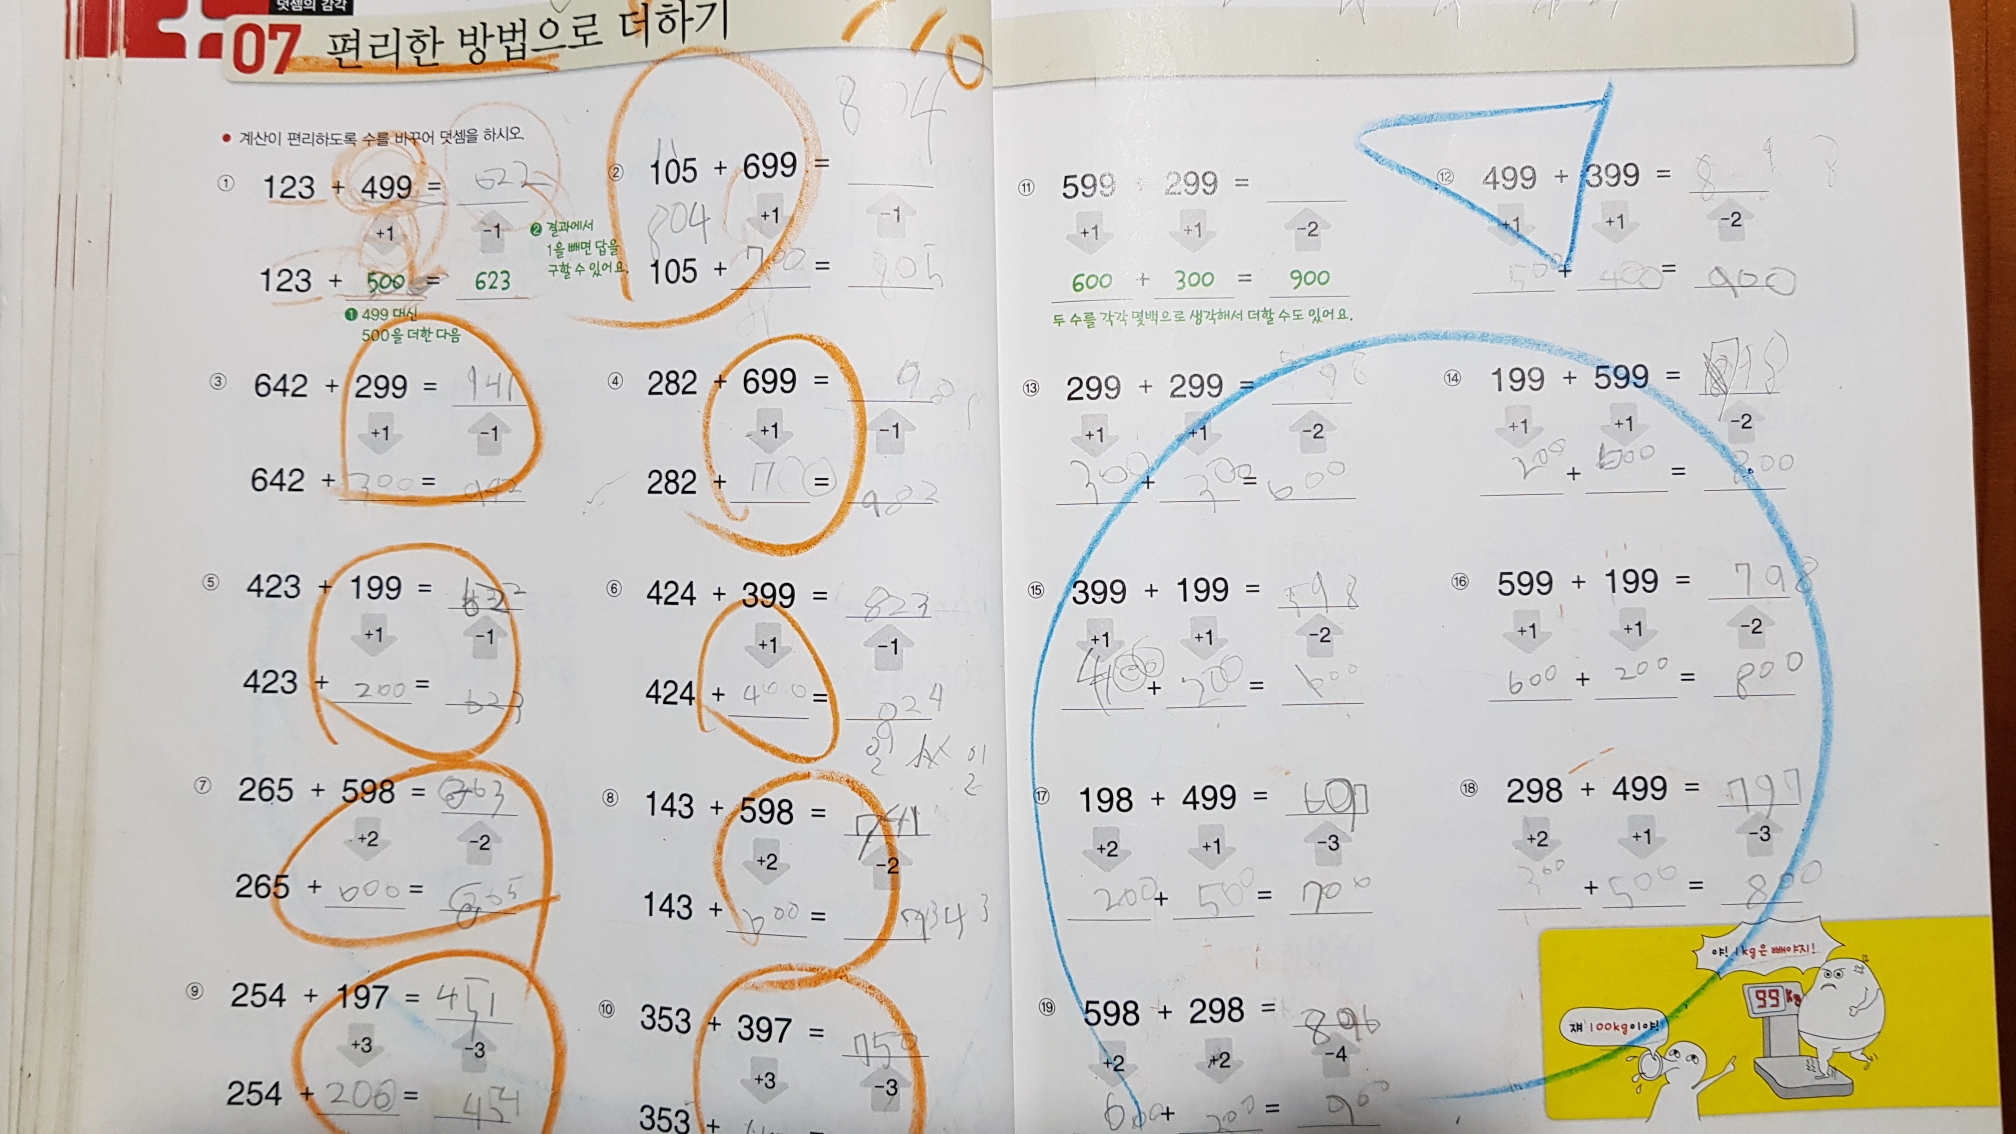 덧셈의 감각
07 편리한 방법으로 더하기
10
• 계산이 편리하도록 수를 바꾸어 덧셈을 하시오.
① 123 + 499 = 622
+1 -1
123 + 500 = 623
❶ 499 대신
500을 더한 다음
❷ 결과에서
1을 빼면 답을
구할 수 있어요.
② 105 + 699 =
804
+1 -1
804
105 + 700 = 805
③ 642 + 299 = 941
+1 -1
642 + 300 = 942
④ 282 + 699 =
+1 -1
282 + 700 =
⑤ 423 + 199 = 622
+1 -1
423 + 200 = 623
⑥ 424 + 399 = 823
+1 -1
424 + 400 = 824
⑦ 265 + 598 = 863
+2 -2
265 + 600 = 865
⑧ 143 + 598 = 741
+2 -2
143 + 600 =
⑨ 254 + 197 = 451
+3 -3
254 + 200 = 454
⑩ 353 + 397 = 750
+3 -3
353 +
⑪ 599 + 299 =
+1 +1 -2
600 + 300 = 900
두 수를 각각 몇백으로 생각해서 더할 수도 있어요.
⑫ 499 + 399 =
+1 +1 -2
500 + 400 = 900
⑬ 299 + 299 =
+1 +1 -2
300 + 300 = 600
⑭ 199 + 599 =
+1 +1 -2
200 + 600 = 800
⑮ 399 + 199 = 598
+1 +1 -2
400 + 200 = 600
⑯ 599 + 199 = 798
+1 +1 -2
600 + 200 = 800
⑰ 198 + 499 = 697
+2 +1 -3
200 + 500 = 700
⑱ 298 + 499 = 797
+2 +1 -3
300 + 500 = 800
⑲ 598 + 298 = 896
+2 +2 -4
600 + 300 = 900
야! 1kg은 빼야지!
99 Kg
쟤 100kg이야!